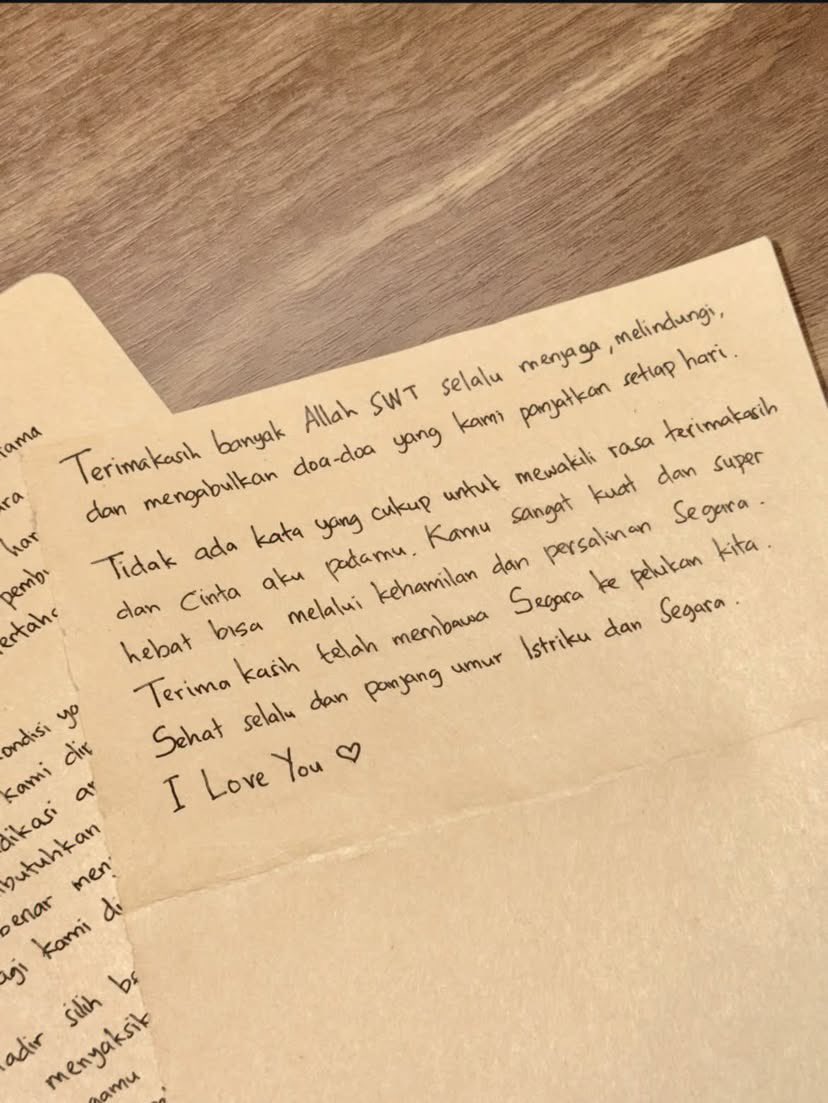 Terimakasih banyak Allah SWT selalu menjaga, melindungi,
dan mengabulkan doa-doa yang kami panjatkan setiap hari.
Tidak ada kata yang cukup untuk mewakili rasa terimakasih
dan Cinta aku padamu. Kamu sangat kuat dan super
hebat bisa melalui kehamilan dan persalinan Segara.
Terima kasih telah membawa Segara ke pelukan kita.
Sehat selalu dan panjang umur Istriku dan Segara.
I Love You ♡
har
kami dir
butuhkan
benar
kami di
silih
menyaksik